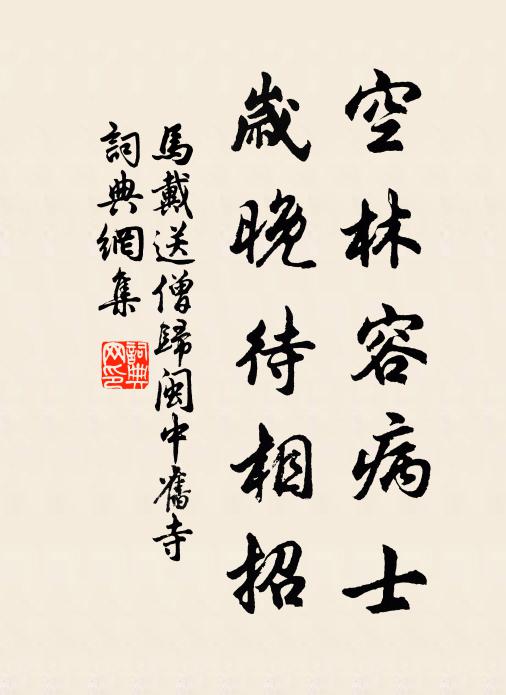 空林容病士
歲晚待相招
馬戴送僧歸閩中舊寺
詞典網集
詞典网印